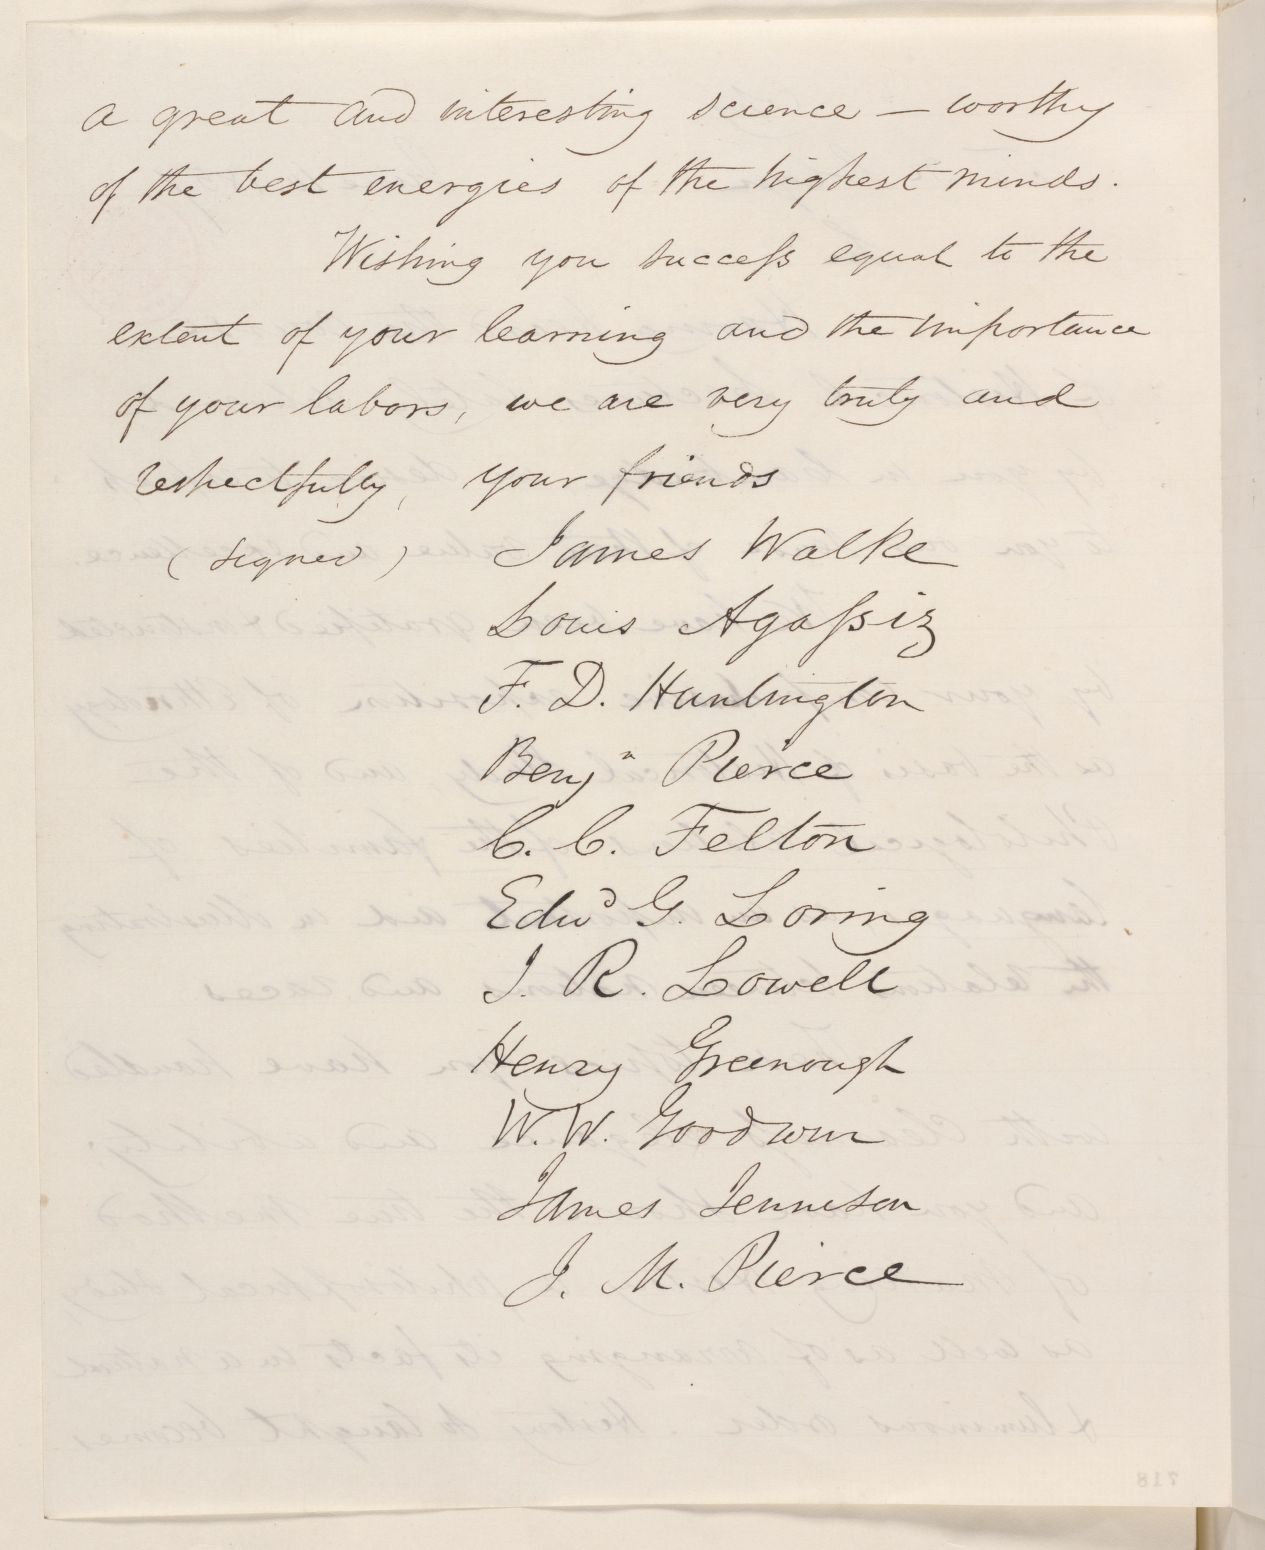 a great and interesting science – worthy
of the best energies of the highest minds.
Wishing you success equal to the
extent of your learning and the importance
of your labors, we are very truly and
respectfully, your friends
(signed) James Walke
Louis Agassiz
F. D. Huntington
Benjn Pierce
C. C. Felton
Edwd G. Loring
J. R. Lowell
Henry Greenough
W. W. Goodwin
James Jennison
J. M. Pierce